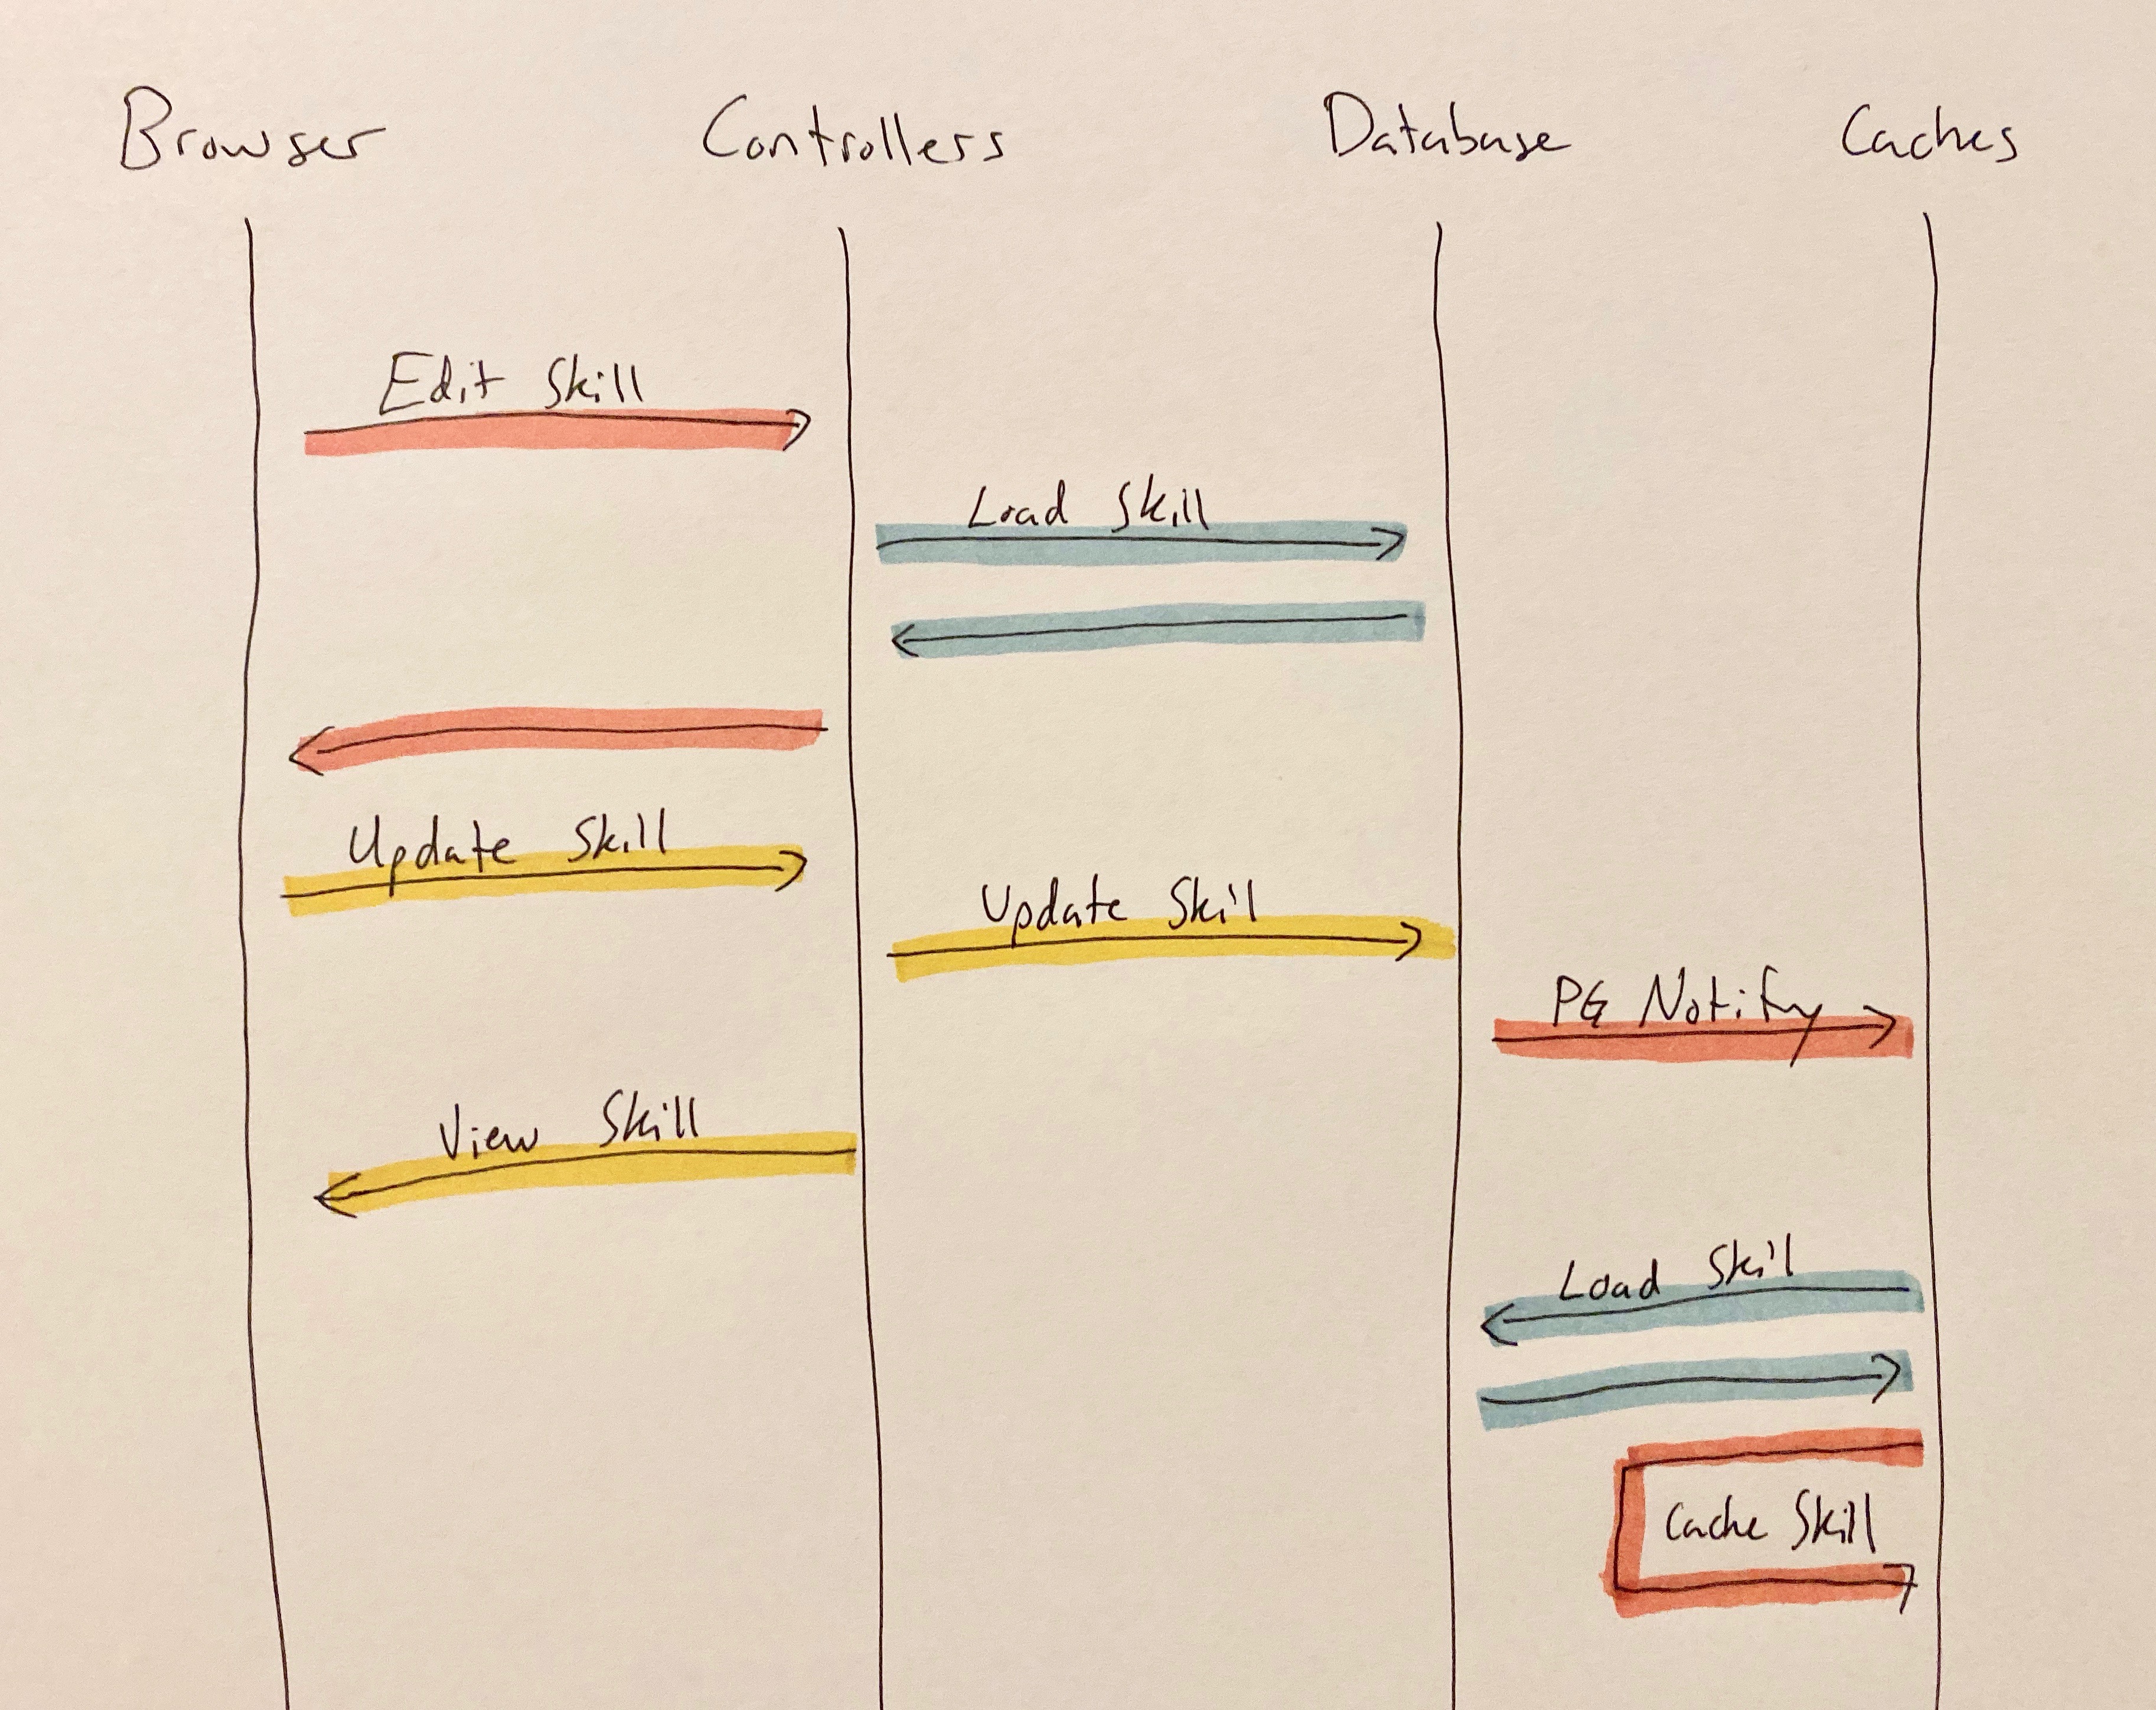 Browser Controllers Database Caches
Edit Skill
Load Skill
Update Skill
Update Skill
PG Notify
View Skill
Load Skill
Cache Skill